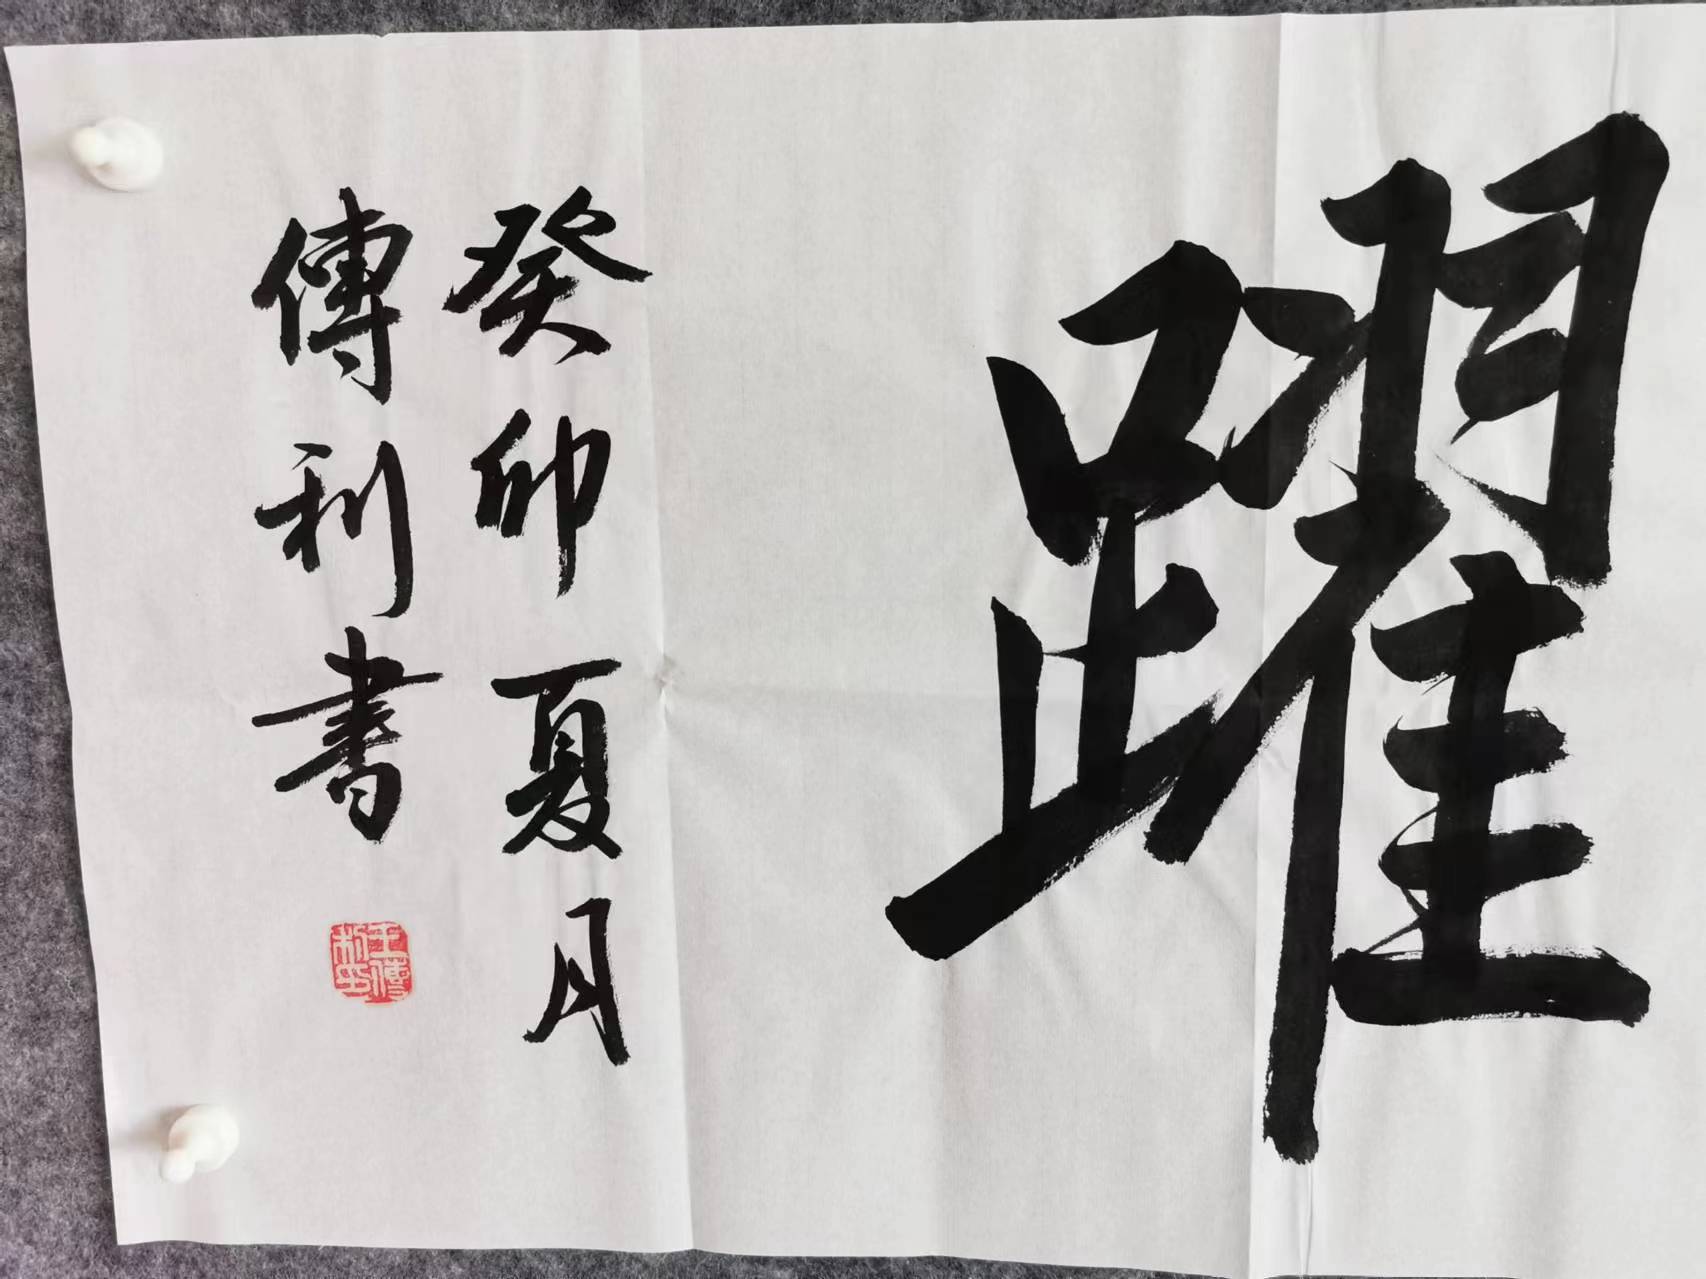 躍
癸卯夏月
傳利書
王傳利印